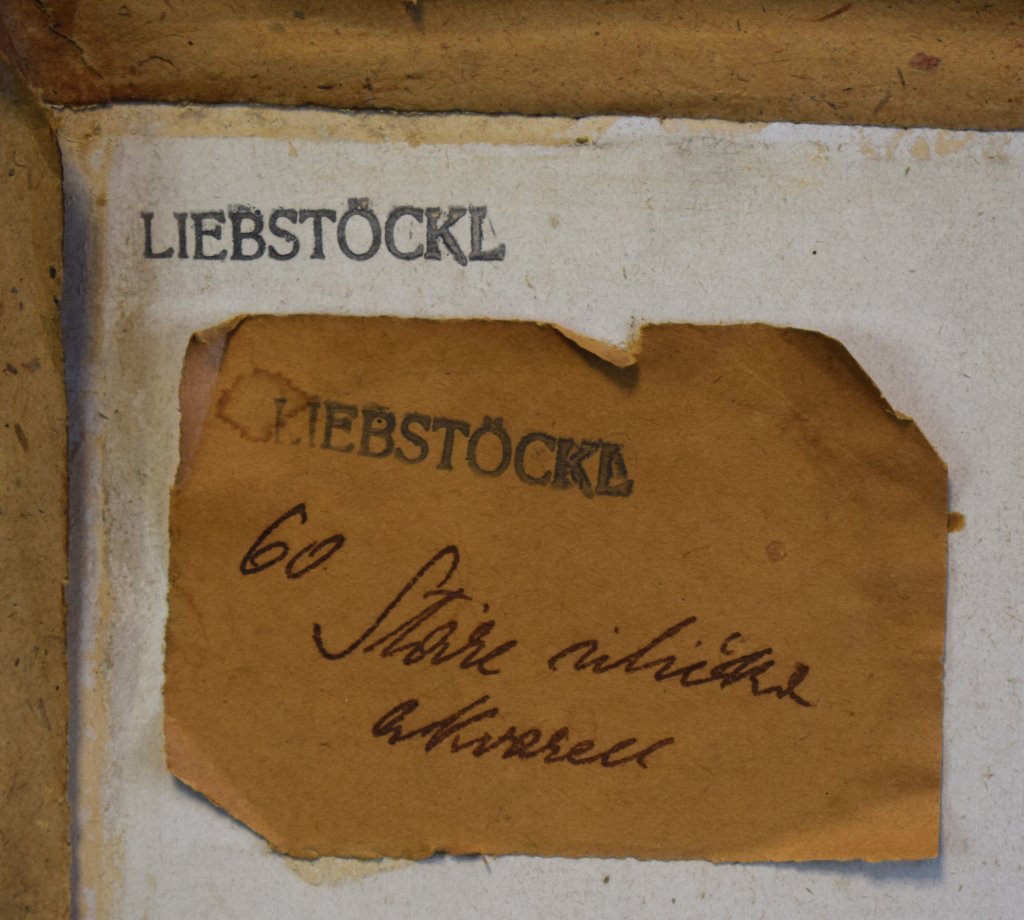 LIEBSTÖCKL
LIEBSTÖCKL
60
Stare uličke
akvarell